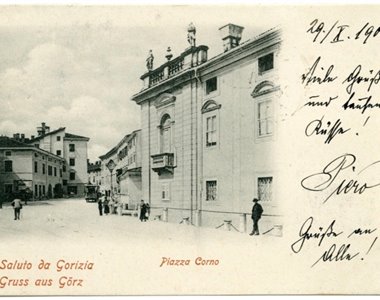 29/X 190
Viele Grüße
und tausen
Küsse!
Piero
Grüße an
Alle!
Saluto da Gorizia
Piazza Corno
Gruss aus Görz